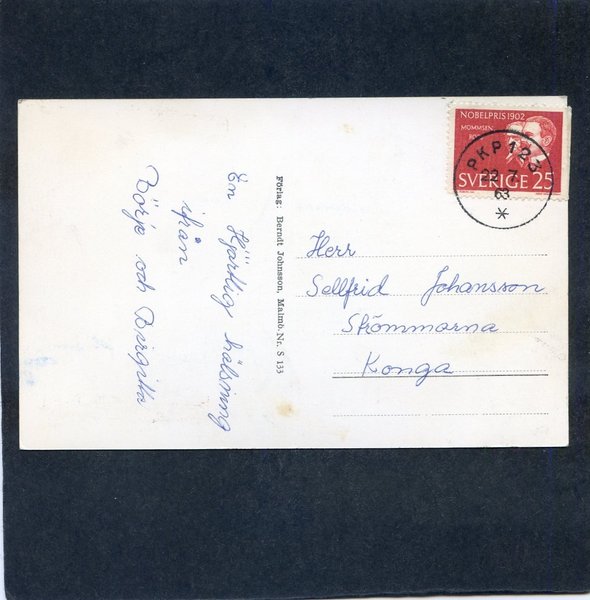 En Hjärtlig hälsning
ifrån
Börje och Birgitta
Förlag: Berndt Johnsson, Malmö. Nr. S 133
NOBELPRIS 1902
MOMMSEN
SVERIGE 25
PKP 123
22 7
63
Herr
Sellfrid Johansson
Strömmarna
Konga